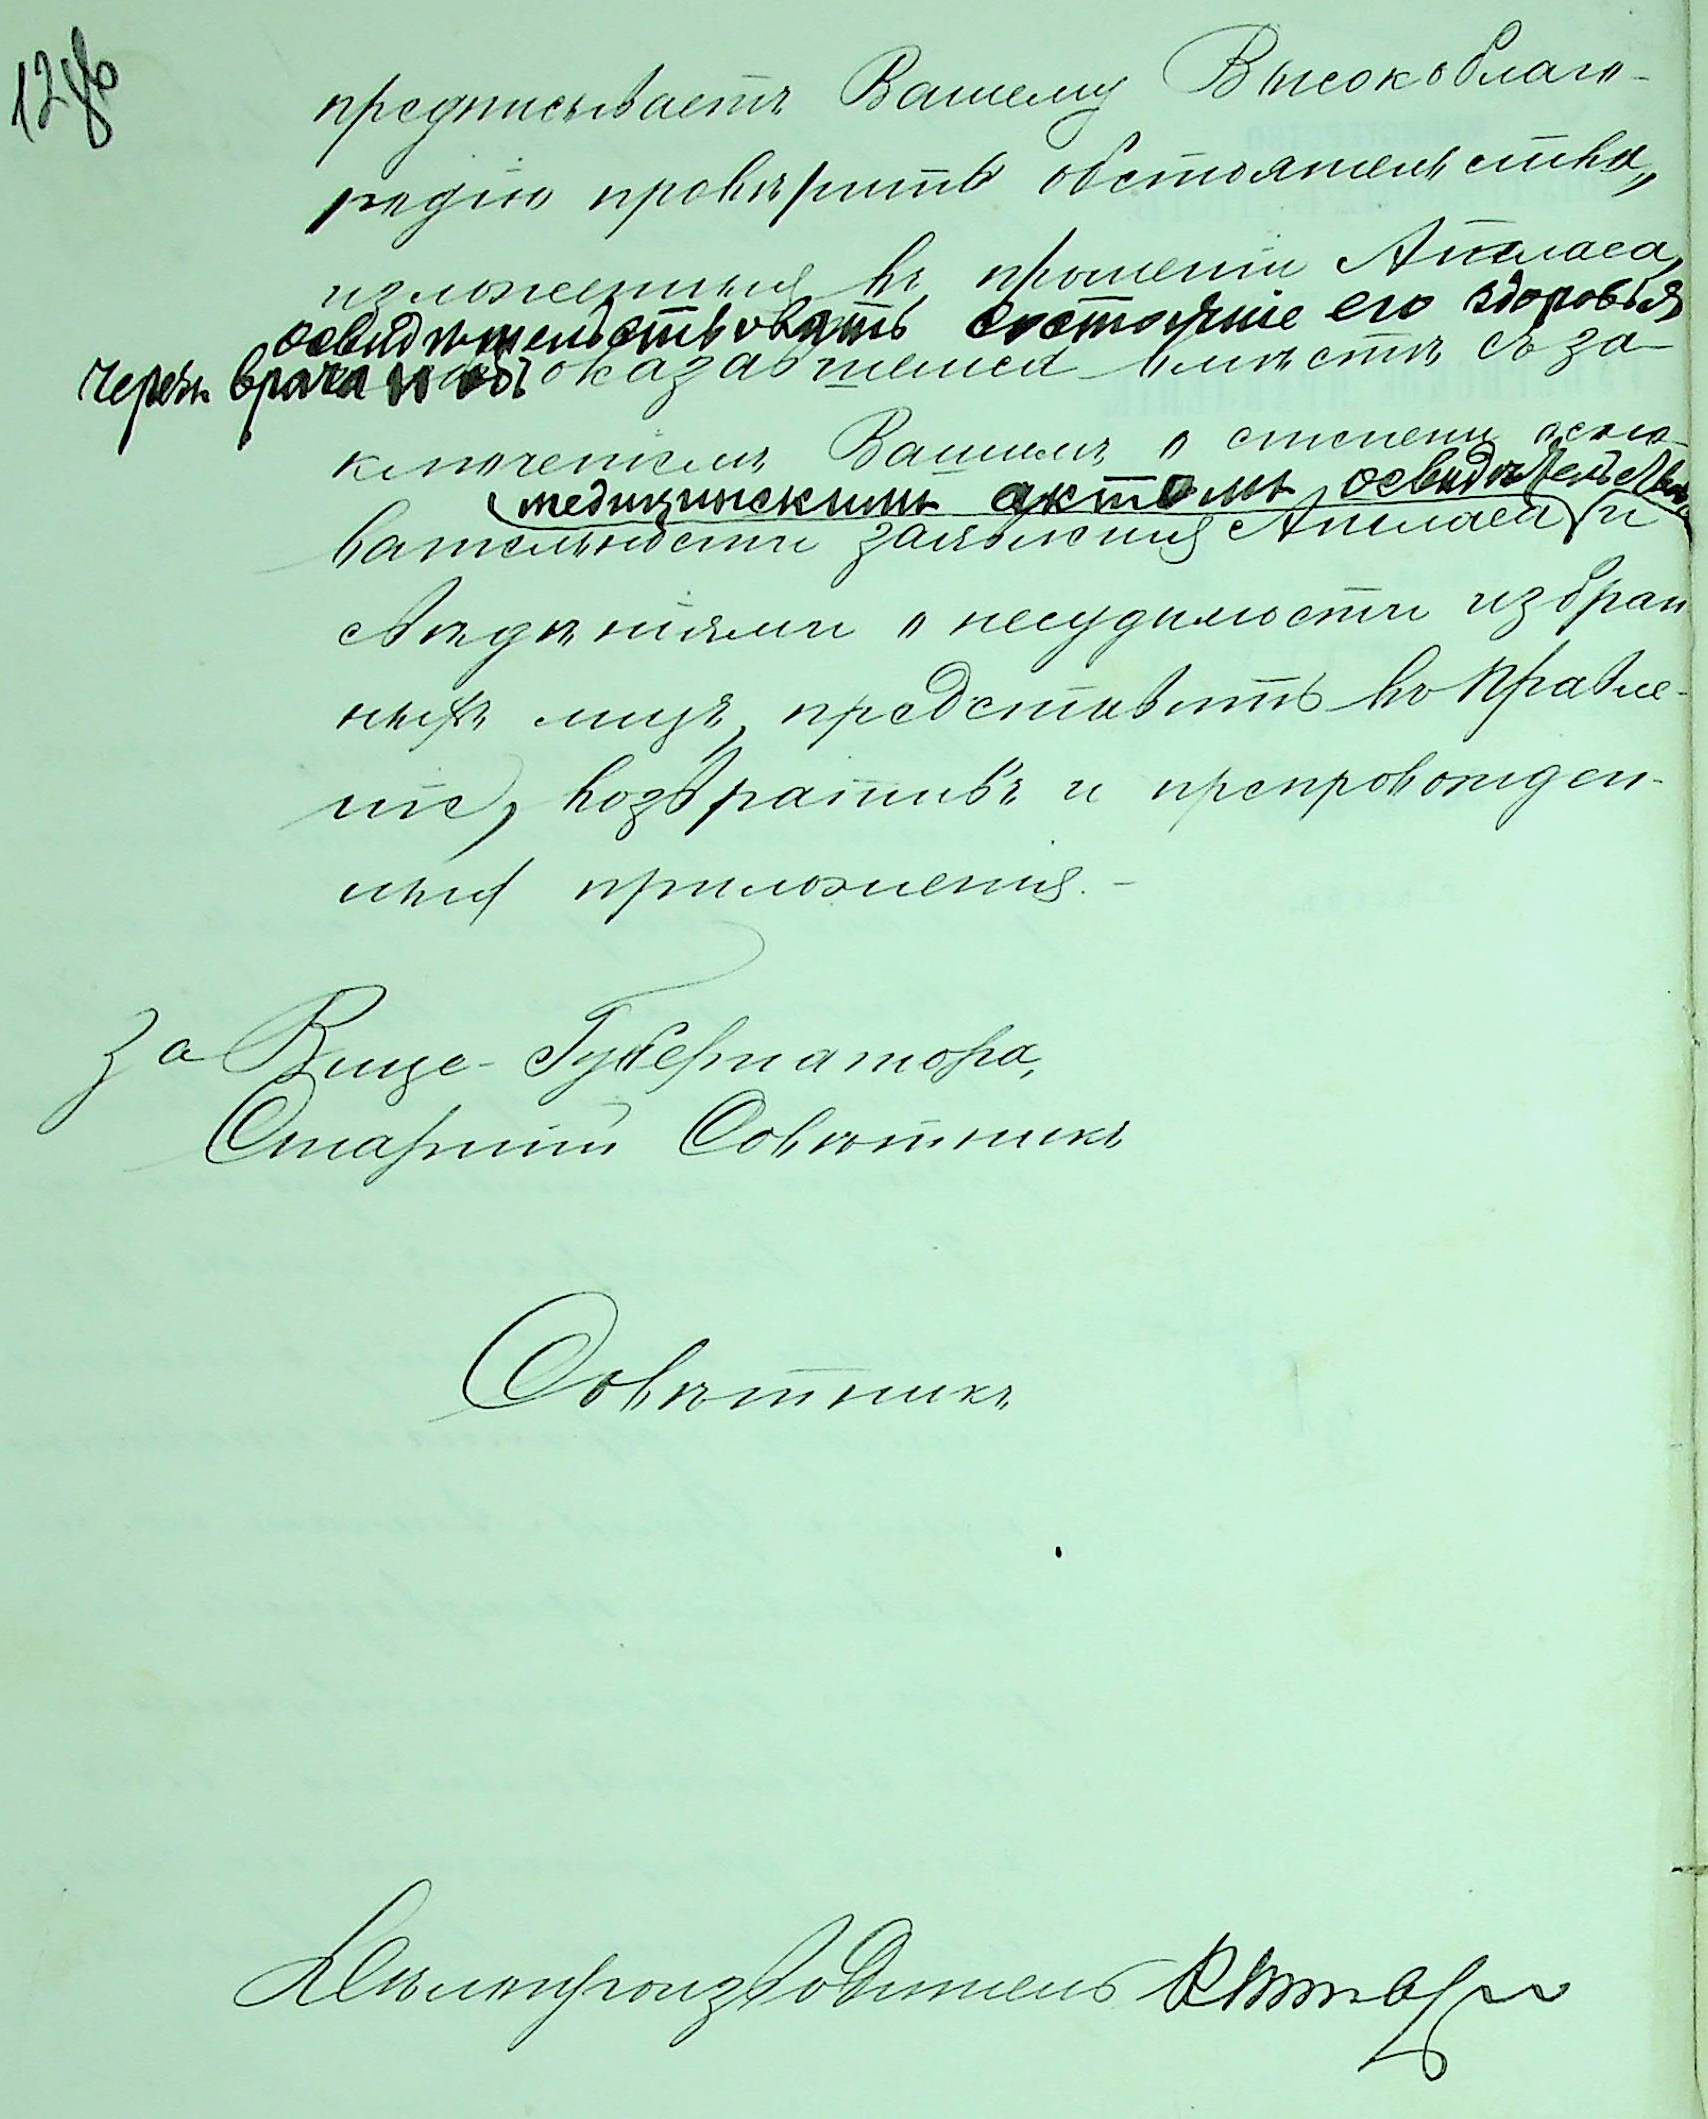 12 об
предписываетъ Вашему Высокоблаго-
родію провѣрить обстоятельства,
изложенныя въ прошеніи Атласа,
освидѣтельствовать состояніе его здоровья
черезъ врача и объ оказавшемся вмѣстѣ съ за-
ключеніемъ Вашимъ о степени осно-
медицинскимъ актомъ освидѣтельствов.
вательности заявленія Атласа, и
свѣдѣніями о несудимости избран
ныхъ лицъ, представить въ Правле-
ніе, возвративъ и препровожден-
ныя приложенія.-
За Вице-Губернатора,
Старшій Совѣтникъ
Совѣтникъ
Дѣлопроизводитель